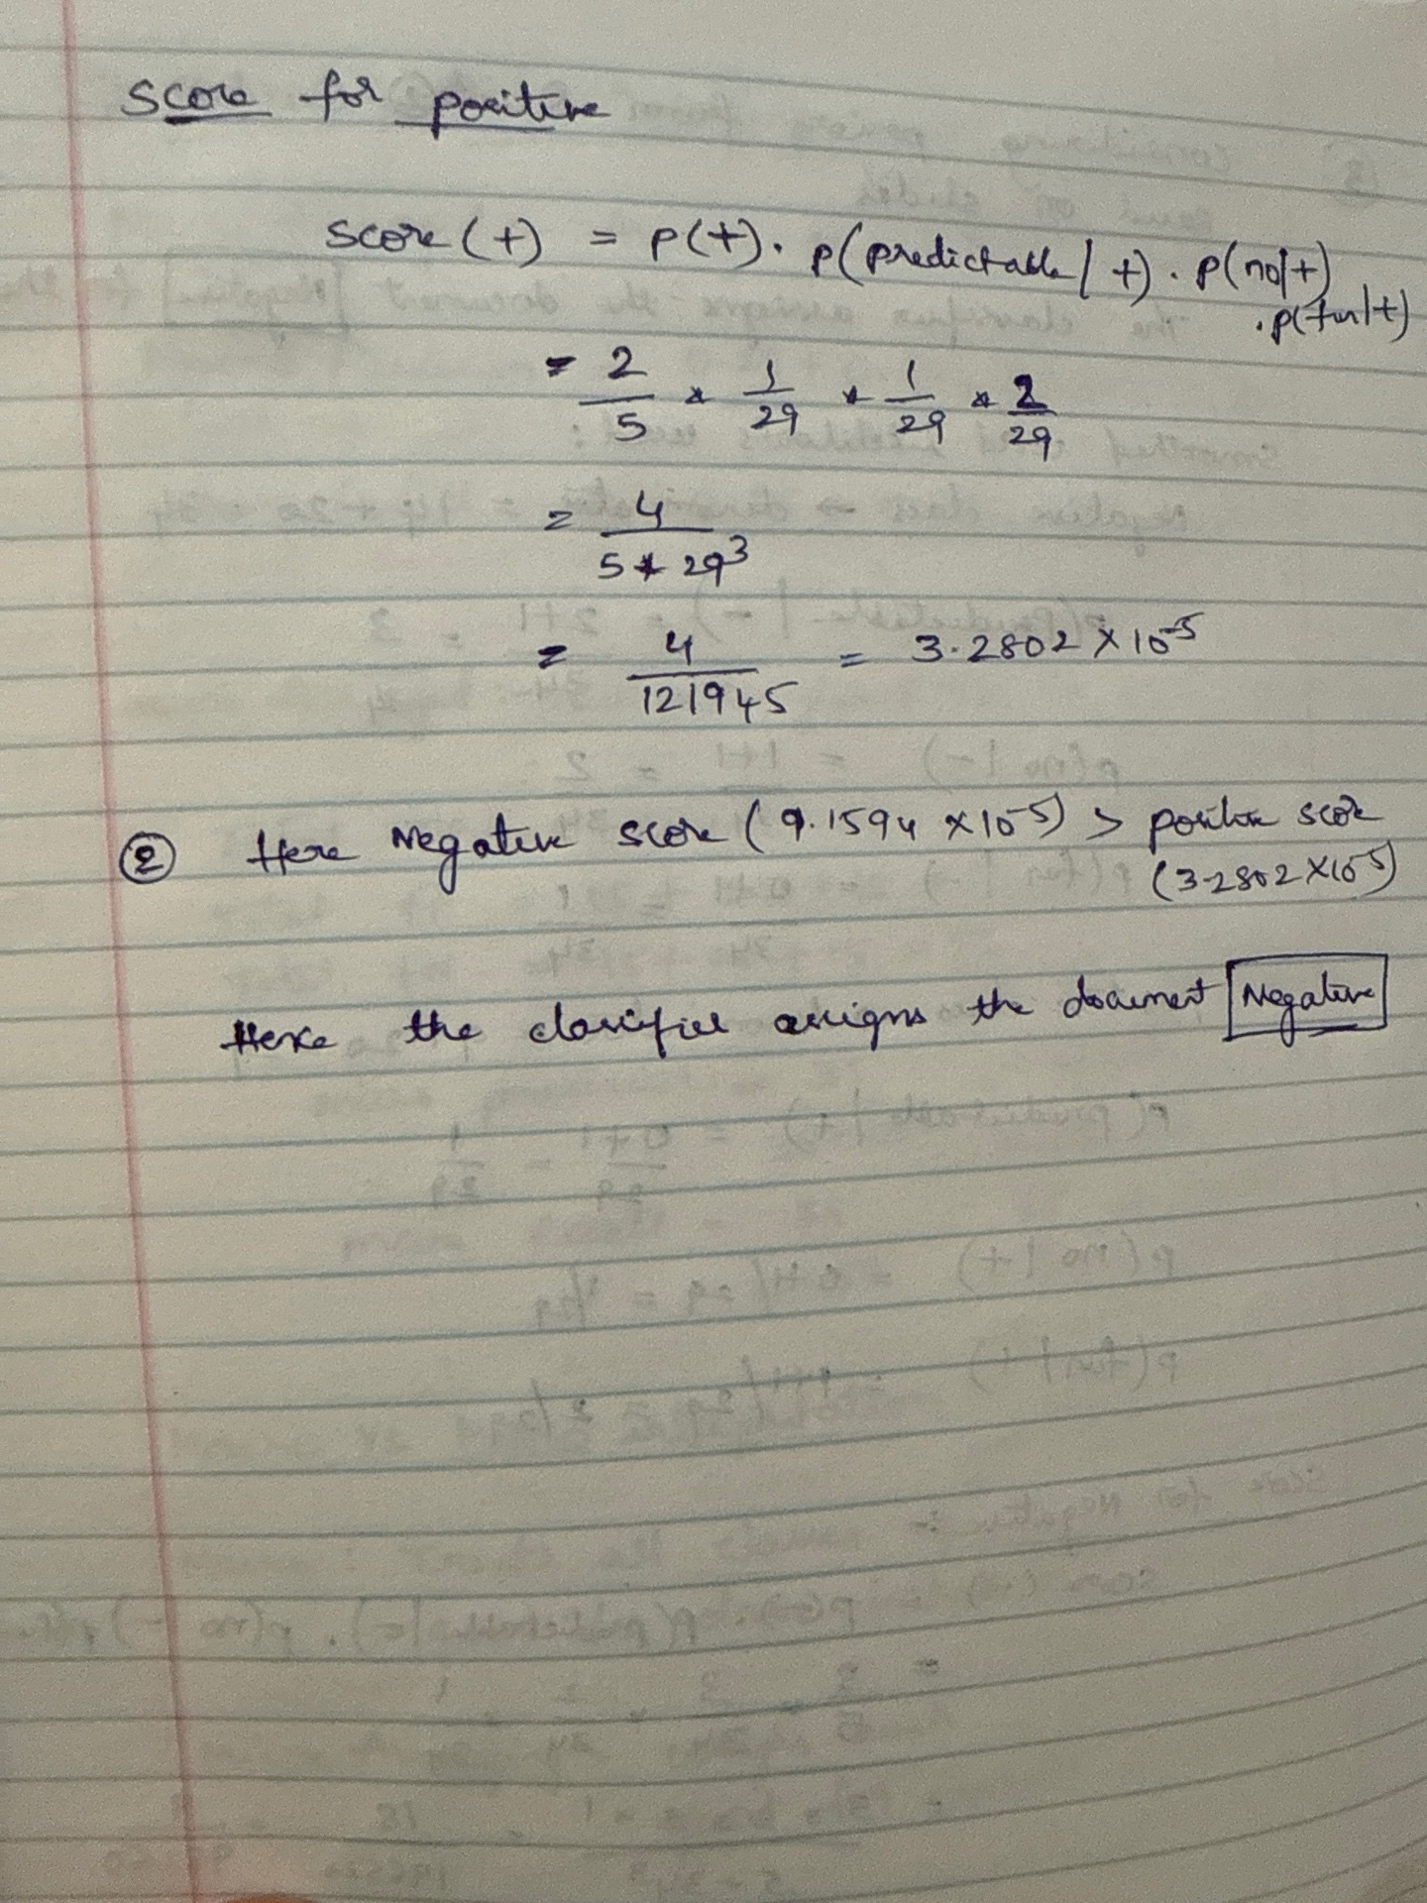 Score for positive
Score (+) = p(+). p(predictable | +) . p(no|+)
. p(fun|+)
= 2/5 * 1/29 * 1/29 * 2/29
= 4 / 5 * 29³
= 4 / 121945 = 3.2802 × 10⁻⁵
② Here Negative score (9.1594 × 10⁻⁵) > positive score
(3.2802 × 10⁻⁵)
Hence the classifier assigns the document Negative